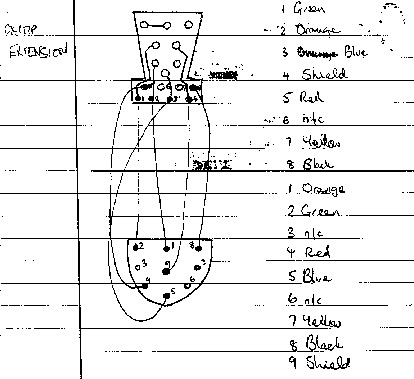 EXTENSION
1 Green
2 Orange
3 Blue
4 Shield
5 Red
6 n/c
7 Yellow
8 Black
1 Orange
2 Green
3 n/c
4 Red
5 Blue
6 n/c
7 Yellow
8 Black
9 Shield
2 1 8
3 9 7
4 6
5